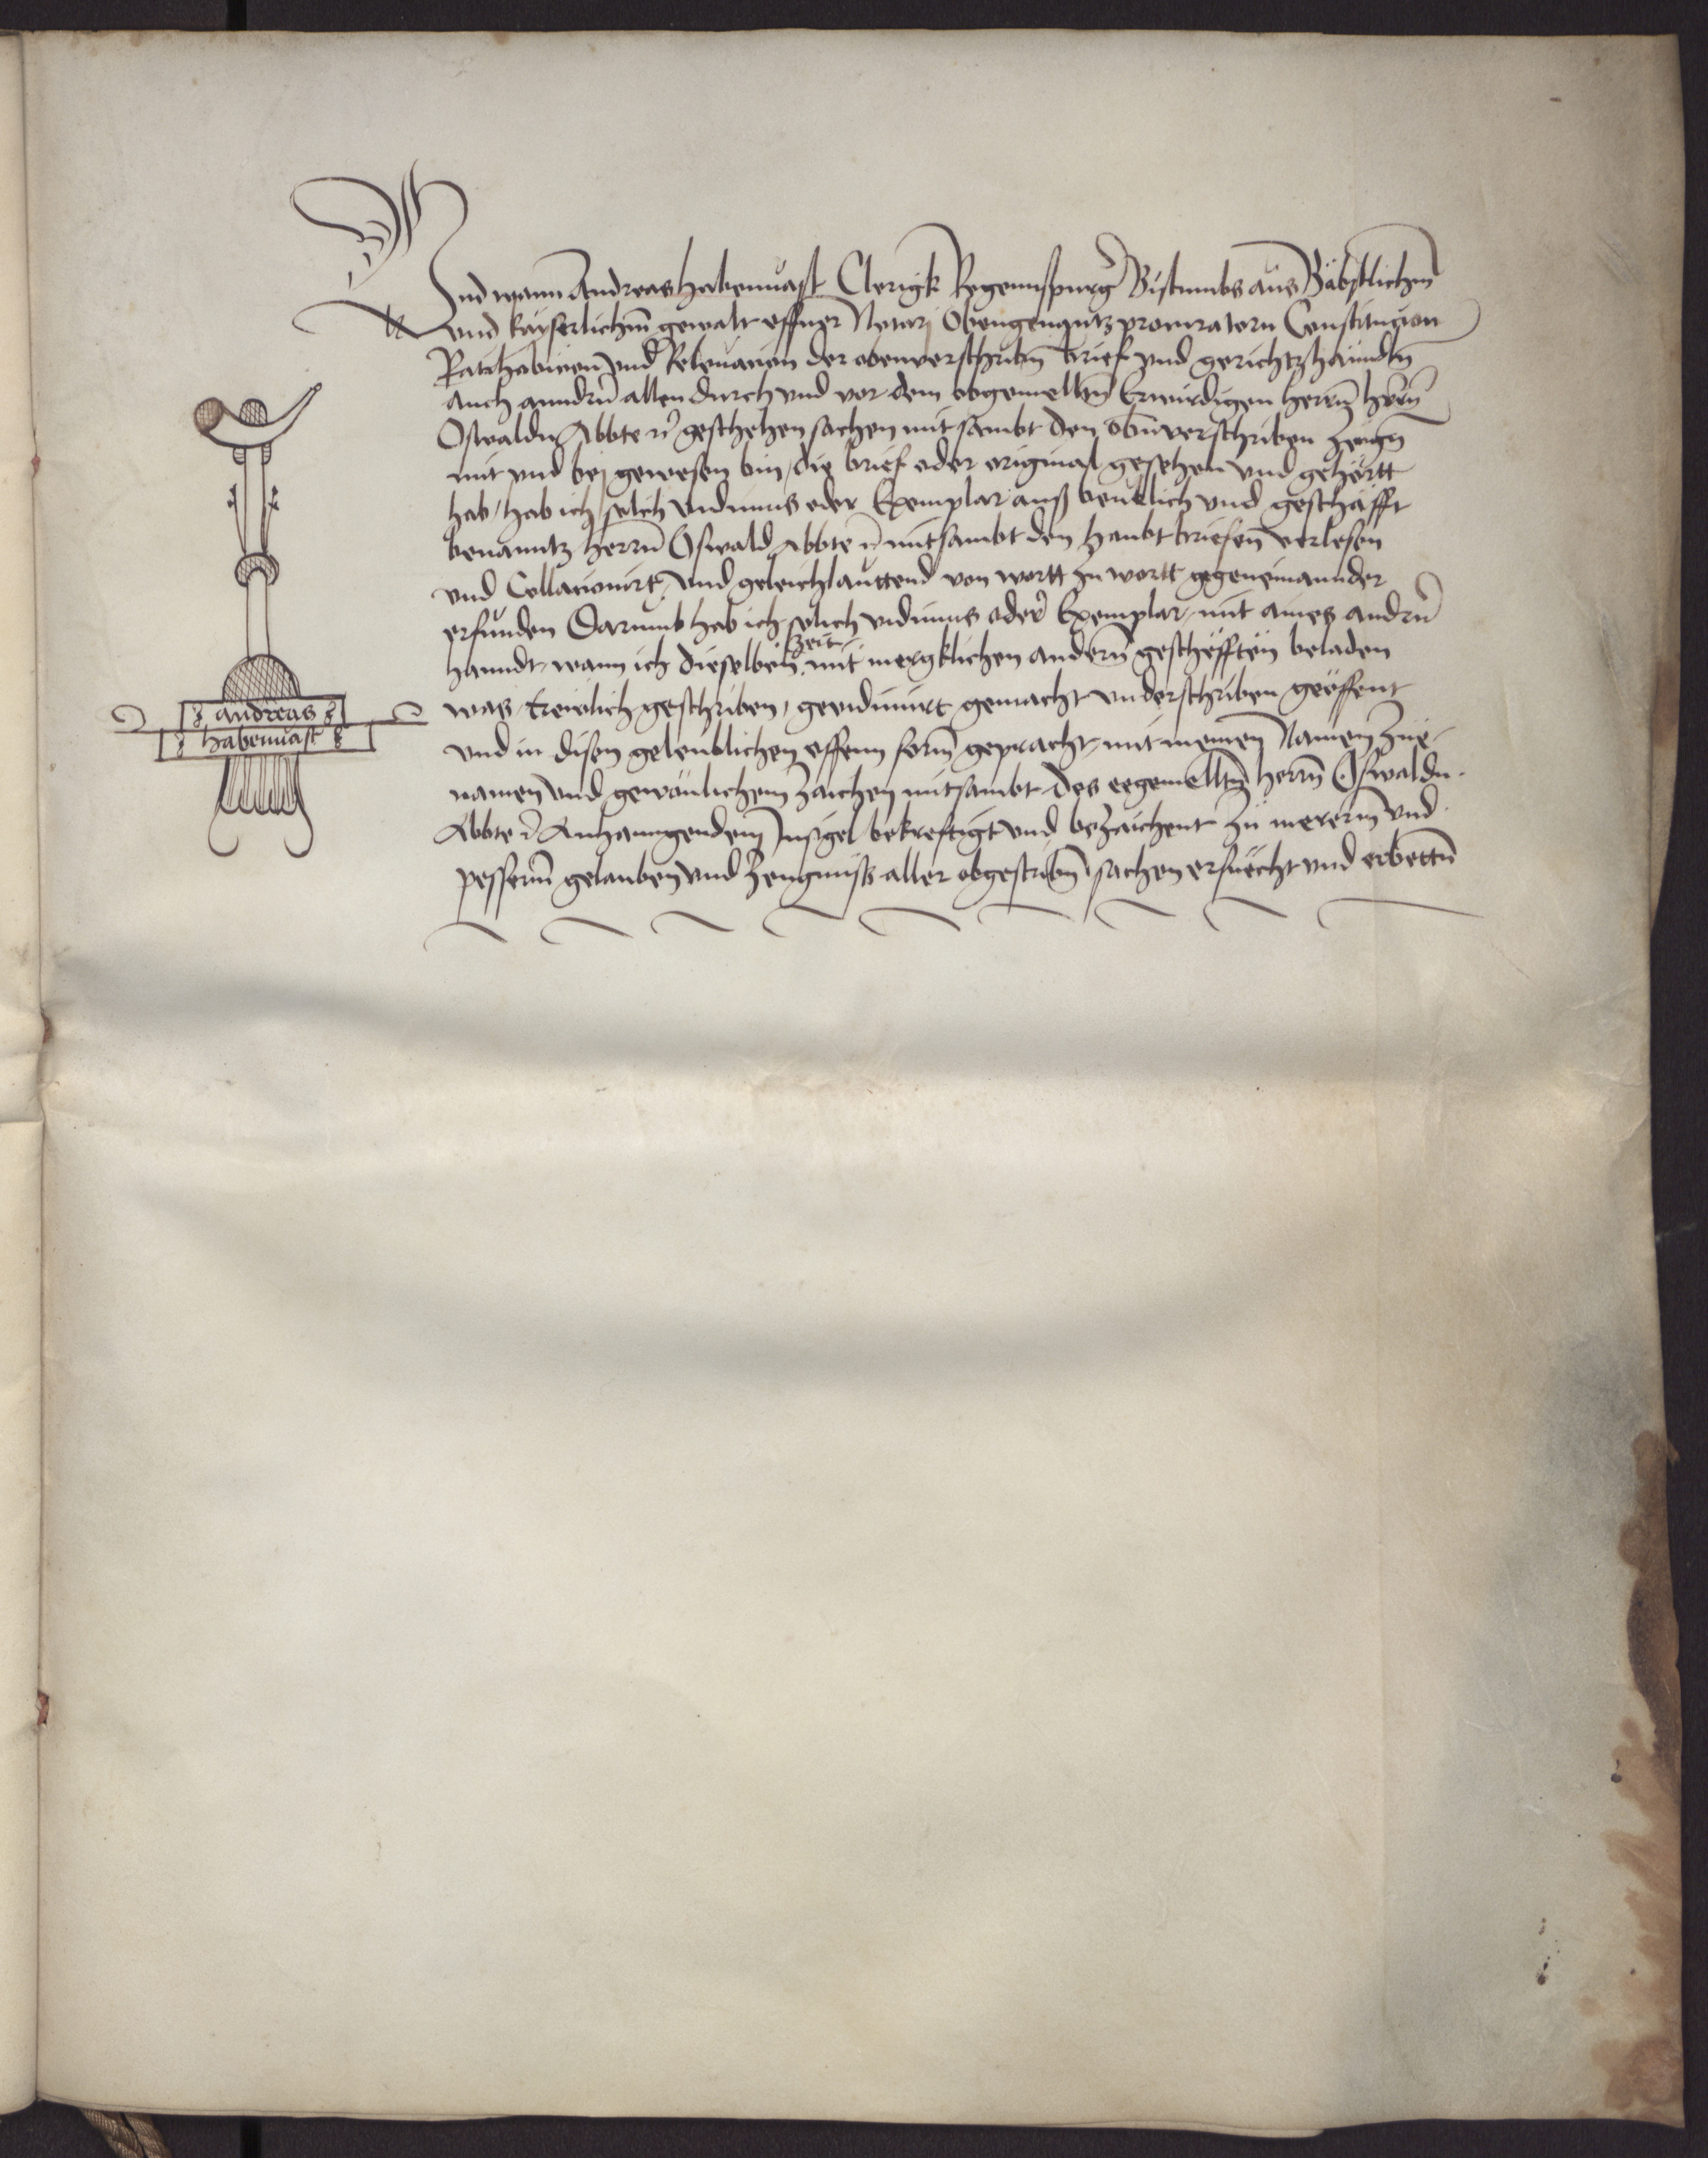 Und wann Andreas habenuast Clerigk Regennspurgr̄ Bistumbs aus Bäbstlichem̄
vnd kayserlichem̄ gewalt offner Notarj Obengenantz procuratorn Constitucion
Ratihabicion vnd Releuacion der obenverschribn̄ brief vnd gerichtzhanndln̄
auch anndrn̄ allen durch vnd vor dem obgemelltn̄ Erwirdigen herrn̄ hern̄
Oswaldn Abbte ꝛc̄ geschehen sachen mit sambt den obn̄verschriben zeugn̄
mit vnd bej gewesen bin / die brief oder original gesehen vnd gehörtt
hab / hab ich solch vidimus oder Exemplar auß beuelich vnd geschäfft
benanntz herrn̄ Oswald Abbte ꝛc̄ mitsambt den haubtbriefen̄ verlesen
vnd Collacionirt vnd geleichlauttend von wortt zu wortt gegeneinannder
erfunden Darumb hab ich solich vidimus oder Exemplar / mit aines andrn̄
hanndt / wann ich dieselben zeit mit mergklichen andern̄ geschëfften beladen
was / trewlich geschriben / geuidimirt gemacht vnderschriben geöffent
vnd in disen geleublichen offenn form̄ gepracht / mit meinen Namen Zue-
namen vnd gewönlichem zaichen mitsambt des eegemelltn̄ herrn̄ Oswaldn
Abbte ꝛc̄ Anhanngendem Insigel bekreftigt vnd bezaichent zu mererm̄ vnd
pesserm̄ gelauben vnd zeugnuss aller obgeschribn̄ sachen ersuecht vnd erbettn̄
andreas
habenuast